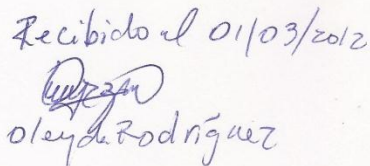 Recibido el 01/03/2012
Oleyda Rodríguez